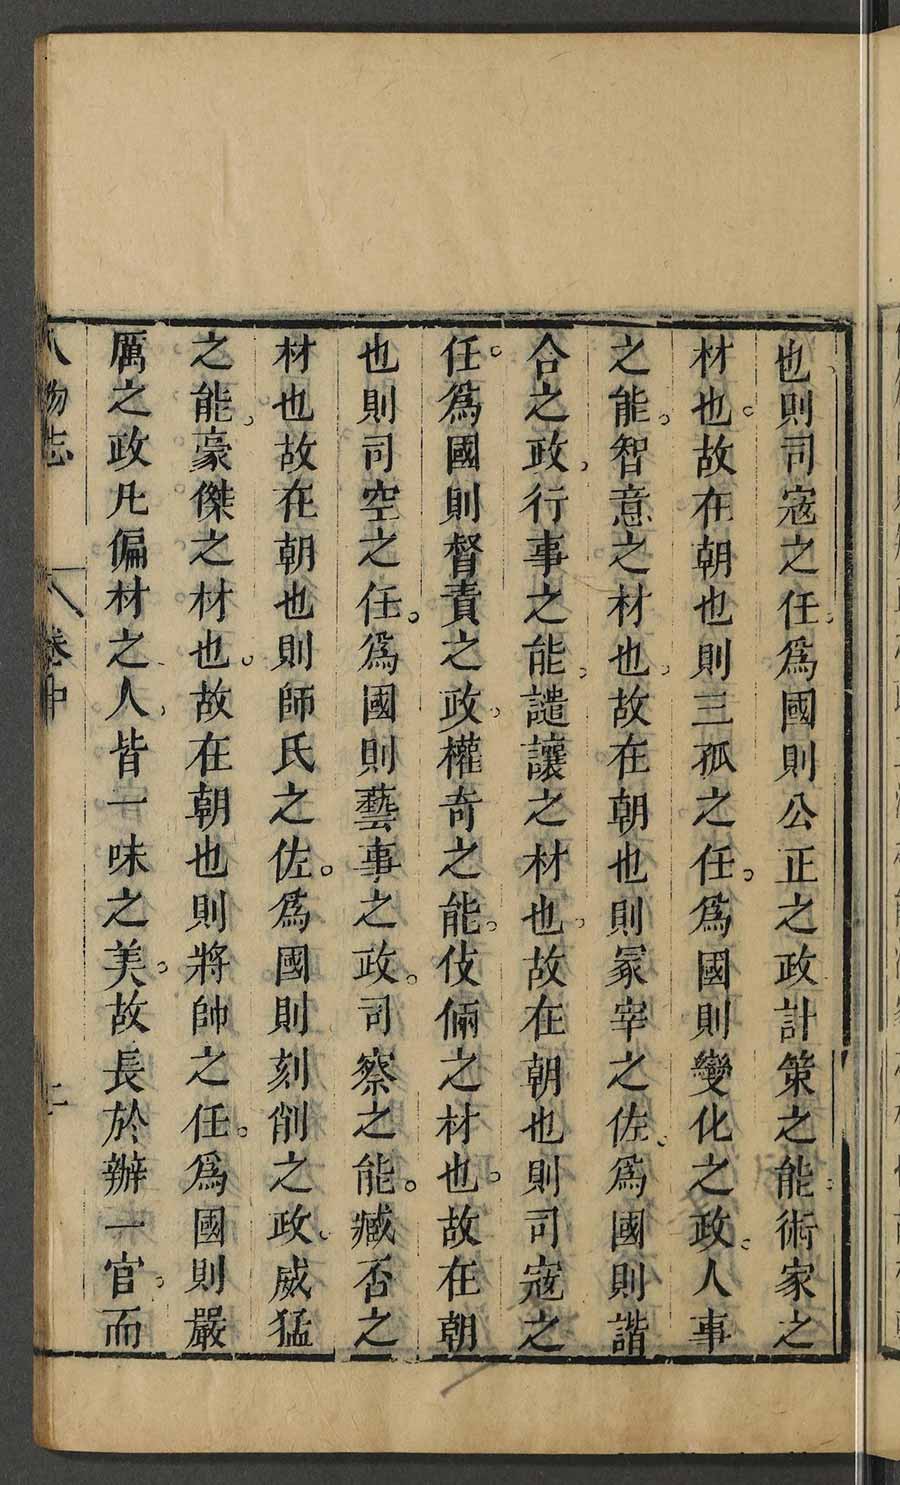 也則司寇之任。爲國則公正之政計策之能。術家之
材也。故在朝也則三孤之任。爲國則變化之政。人事
之能。智意之材也。故在朝也則冢宰之佐。爲國則諧
合之政。行事之能。譴讓之材也。故在朝也則司寇之
任。爲國則督責之政。權奇之能。伎倆之材也。故在朝
也則司空之任。爲國則藝事之政。司察之能。臧否之
材也故在朝也則師氏之佐。爲國則刻削之政。威猛
之能。豪傑之材也。故在朝也則將帥之任。爲國則嚴
厲之政凡偏材之人。皆一味之美。故長於辦一官。而
人物志
卷中